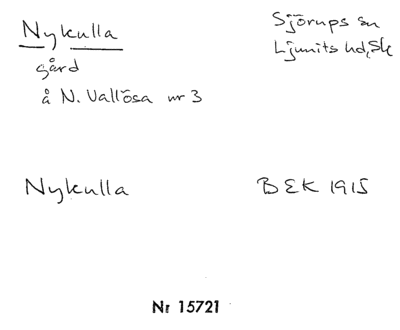 Nykulla
Sjörups sn
Ljunits hd, Sk
gård
å N. Vallösa nr 3
Nykulla
BEK 1915
Nr 15721